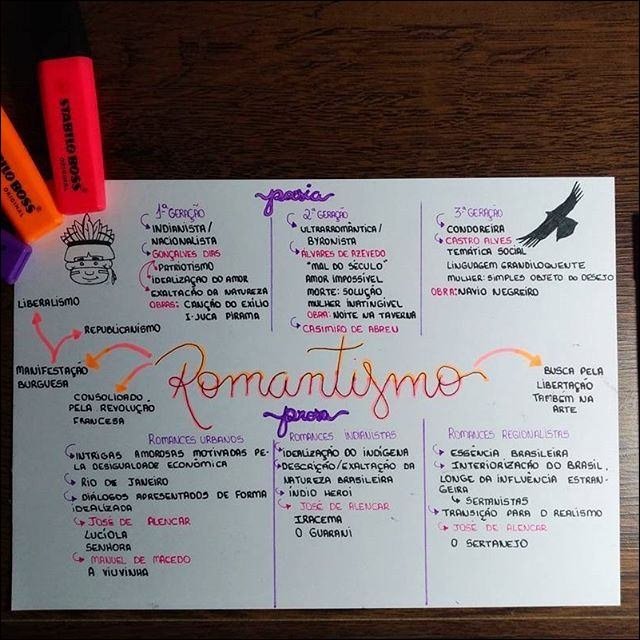 STABILO BOSS
ORIGINAL
STABILO BOSS
ORIGINAL
poesia
1ª GERAÇÃO
INDIANISTA/
NACIONALISTA
GONÇALVES DIAS
PATRIOTISMO
IDEALIZAÇÃO DO AMOR
EXALTAÇÃO DA NATUREZA
OBRAS: CANÇÃO DO EXÍLIO
I-JUCA PIRAMA
2ª GERAÇÃO
ULTRARROMÂNTICA/
BYRONISTA
ÁLVARES DE AZEVEDO
"MAL DO SÉCULO"
AMOR IMPOSSÍVEL
MORTE: SOLUÇÃO
MULHER INATINGÍVEL
OBRA: NOITE NA TAVERNA
CASIMIRO DE ABREU
3ª GERAÇÃO
CONDOREIRA
CASTRO ALVES
TEMÁTICA SOCIAL
LINGUAGEM GRANDILOQUENTE
MULHER: SIMPLES OBJETO DO DESEJO
OBRA: NAVIO NEGREIRO
LIBERALISMO
REPUBLICANISMO
MANIFESTAÇÃO
BURGUESA
CONSOLIDADO
PELA REVOLUÇÃO
FRANCESA
Romantismo
BUSCA PELA
LIBERTAÇÃO
TAMBÉM NA
ARTE
prosa
ROMANCES URBANOS
INTRIGAS AMOROSAS MOTIVADAS PE-
LA DESIGUALDADE ECONÔMICA
RIO DE JANEIRO
DIÁLOGOS APRESENTADOS DE FORMA
IDEALIZADA
JOSÉ DE ALENCAR
LUCÍOLA
SENHORA
MANUEL DE MACEDO
A VIUVINHA
ROMANCES INDIANISTAS
IDEALIZAÇÃO DO INDÍGENA
DESCRIÇÃO/EXALTAÇÃO DA
NATUREZA BRASILEIRA
ÍNDIO HERÓI
JOSÉ DE ALENCAR
IRACEMA
O GUARANI
ROMANCES REGIONALISTAS
ESSÊNCIA BRASILEIRA
INTERIORIZAÇÃO DO BRASIL,
LONGE DA INFLUÊNCIA ESTRAN-
GEIRA
SERTANISTAS
TRANSIÇÃO PARA O REALISMO
JOSÉ DE ALENCAR
O SERTANEJO